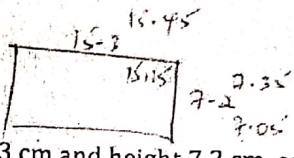 15.45
15-3
15.15
7.35
7-2
7.05
3 cm and height 7.2 cm